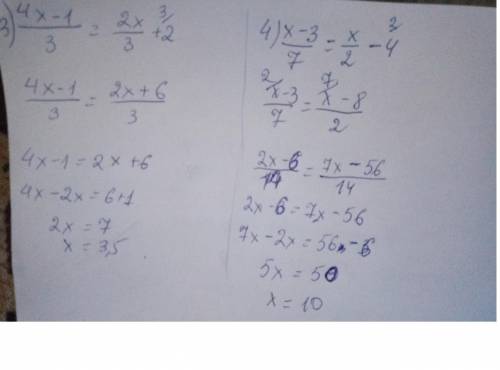 3) (4x-1)/3 = 2x/3 + 2 ^3/
(4x-1)/3 = (2x+6)/3
4x-1=2x+6
4x-2x=6+1
2x=7
x=3,5
4) (x-3)/7 = x/2 - 4 ^2
^2/ (x-3)/7 = ^7/ (x-8)/2
(2x-6)/14 = (7x-56)/14
2x-6=7x-56
7x-2x=56-6
5x=50
x=10